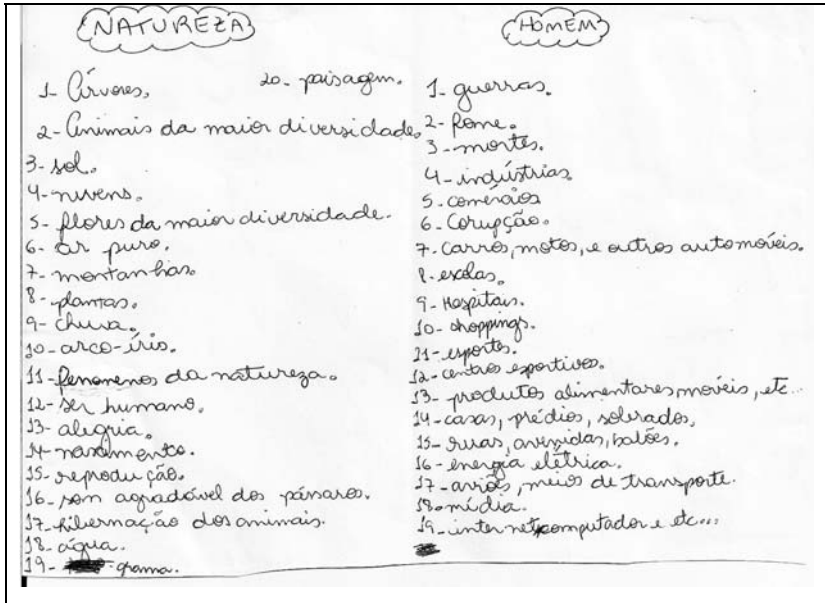 NATUREZA
1- Árvores,
20- paisagem.
2- Animais da maior diversidade,
3- sol.
4- nuvens.
5- flores da maior diversidade.
6- ar puro.
7- montanhas
8- plantas.
9- chuva.
10- arco-íris.
11- fenomenos da natureza.
12- ser humano.
13- alegria.
14- nascimento.
15- reprodução.
16- som agradável dos pássaros.
17- hibernação dos animais.
18- água.
19- grama.
HOMEM
1- guerras.
2- fome.
3- mortes.
4- indústrias
5. comércios
6. Corupção.
7. carros, motos, e outros automóveis.
8. escolas.
9- Hospitais.
10- shoppings.
11- esportes.
12- centros esportivos.
13- produtos alimentares moveis, etc...
14- casas, prédios, sobrados,
15- ruas, avenidas, balões.
16- energia elétrica.
17- aviões, meios de transporte.
18. mídia.
19- internet, computador e etc...